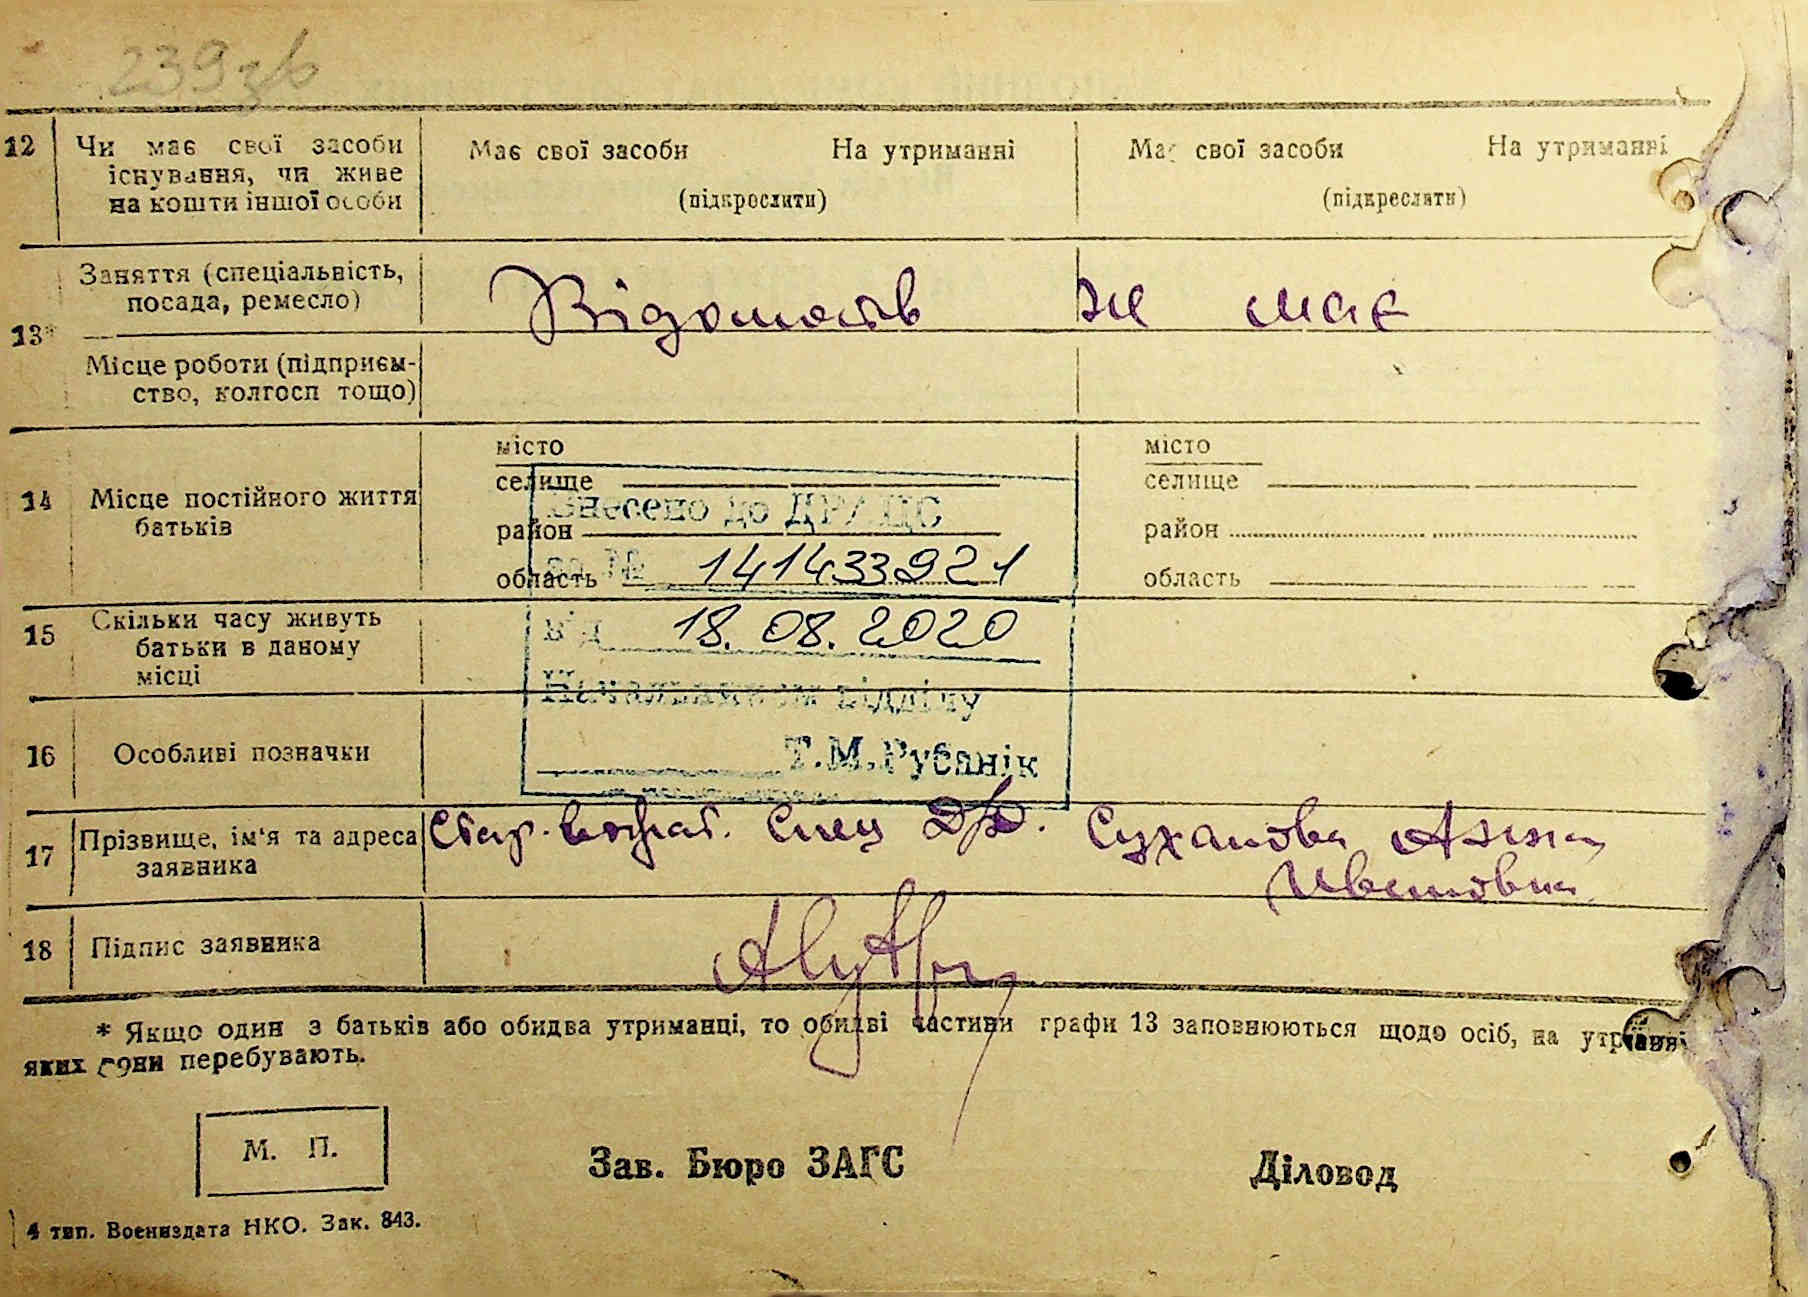 239зв
12 Чи має свої засоби існування, чи живе на кошти іншої особи
Має свої засоби На утриманні
(підкреслити)
Має свої засоби На утриманні
(підкреслити)
13* Заняття (спеціальність, посада, ремесло)
Відомостів не має
Місце роботи (підприємство, колгосп тощо)
14 Місце постійного життя батьків
місто
селище
район
область
місто
селище
район
область
Внесено до ДРАЦС
за № 141433921
від 18.08.2020
Начальником відділу
Т.М.Рубанік
15 Скільки часу живуть батьки в даному місці
16 Особливі позначки
17 Прізвище, ім'я та адреса заявника
Стар. воспат. Спец Д/Д. Суханова Анна
Ивановна
18 Підпис заявника
* Якщо один з батьків або обидва утриманці, то обидві частини графи 13 заповнюються щодо осіб, на утриманні
яких вони перебувають.
М. П.
Зав. Бюро ЗАГС
Діловод
4 тип. Воениздата НКО. Зак. 843.